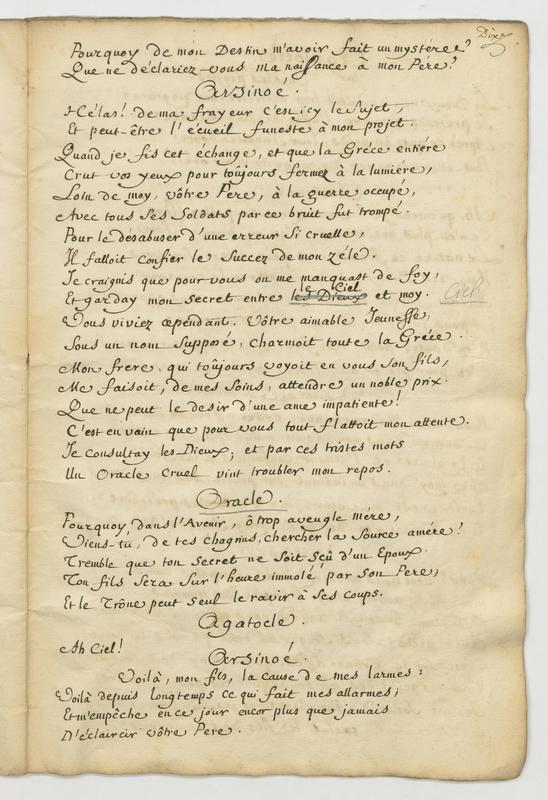 Dixe
Pourquoy de mon Destin m'avoir fait un mystére?
Que ne déclariez-vous ma naissance à mon Pére?
Arsinoé.
Hélas! de ma frayeur c'est icy le Sujet,
Et peut-être l'écueil funeste à mon projet.
Quand je fis cet échange, et que la Gréce entiére
Crut vos yeux pour toûjours fermez à la lumiére,
Loin de moy, vôtre Pere, à la guerre occupé,
Avec tous Ses Soldats par ce bruit fut trompé.
Pour le désabuser d'une erreur Si cruelle,
Il falloit confier le Succez de mon zéle.
Je craignis que pour vous on me manquast de foy,
le Ciel
Et garday mon Secret entre les Dieux et moy. Ciel
Vous viviez cependant. Vôtre aimable Jeunesse,
Sous un nom Supposé, charmoit toute la Gréce.
Mon frere, qui toûjours voyoit en vous Son fils,
Me faisoit, de mes Soins, attendre un noble prix.
Que ne peut le desir d'une ame impatiente!
C'est en vain que pour vous tout flattoit mon attente.
Je Consultay les Dieux; et par ces tristes mots
Un Oracle Cruel vint troubler mon repos.
Oracle.
Pourquoy dans l'Avenir, ô trop aveugle mére,
Viens-tu, de tes chagrins, chercher la Source amére?
Tremble que ton Secret ne Soit Sçû d'un Epoux.
Ton fils Sera Sur l'heure immolé par Son Pere;
Et le Trône peut Seul le ravir à Ses coups.
Agatocle.
Ah Ciel!
Arsinoé.
Voilà, mon fils, la cause de mes larmes:
Voilà depuis longtemps ce qui fait mes allarmes;
Et m'empêche en ce jour encor plus que jamais
D'éclaircir vôtre Pere.